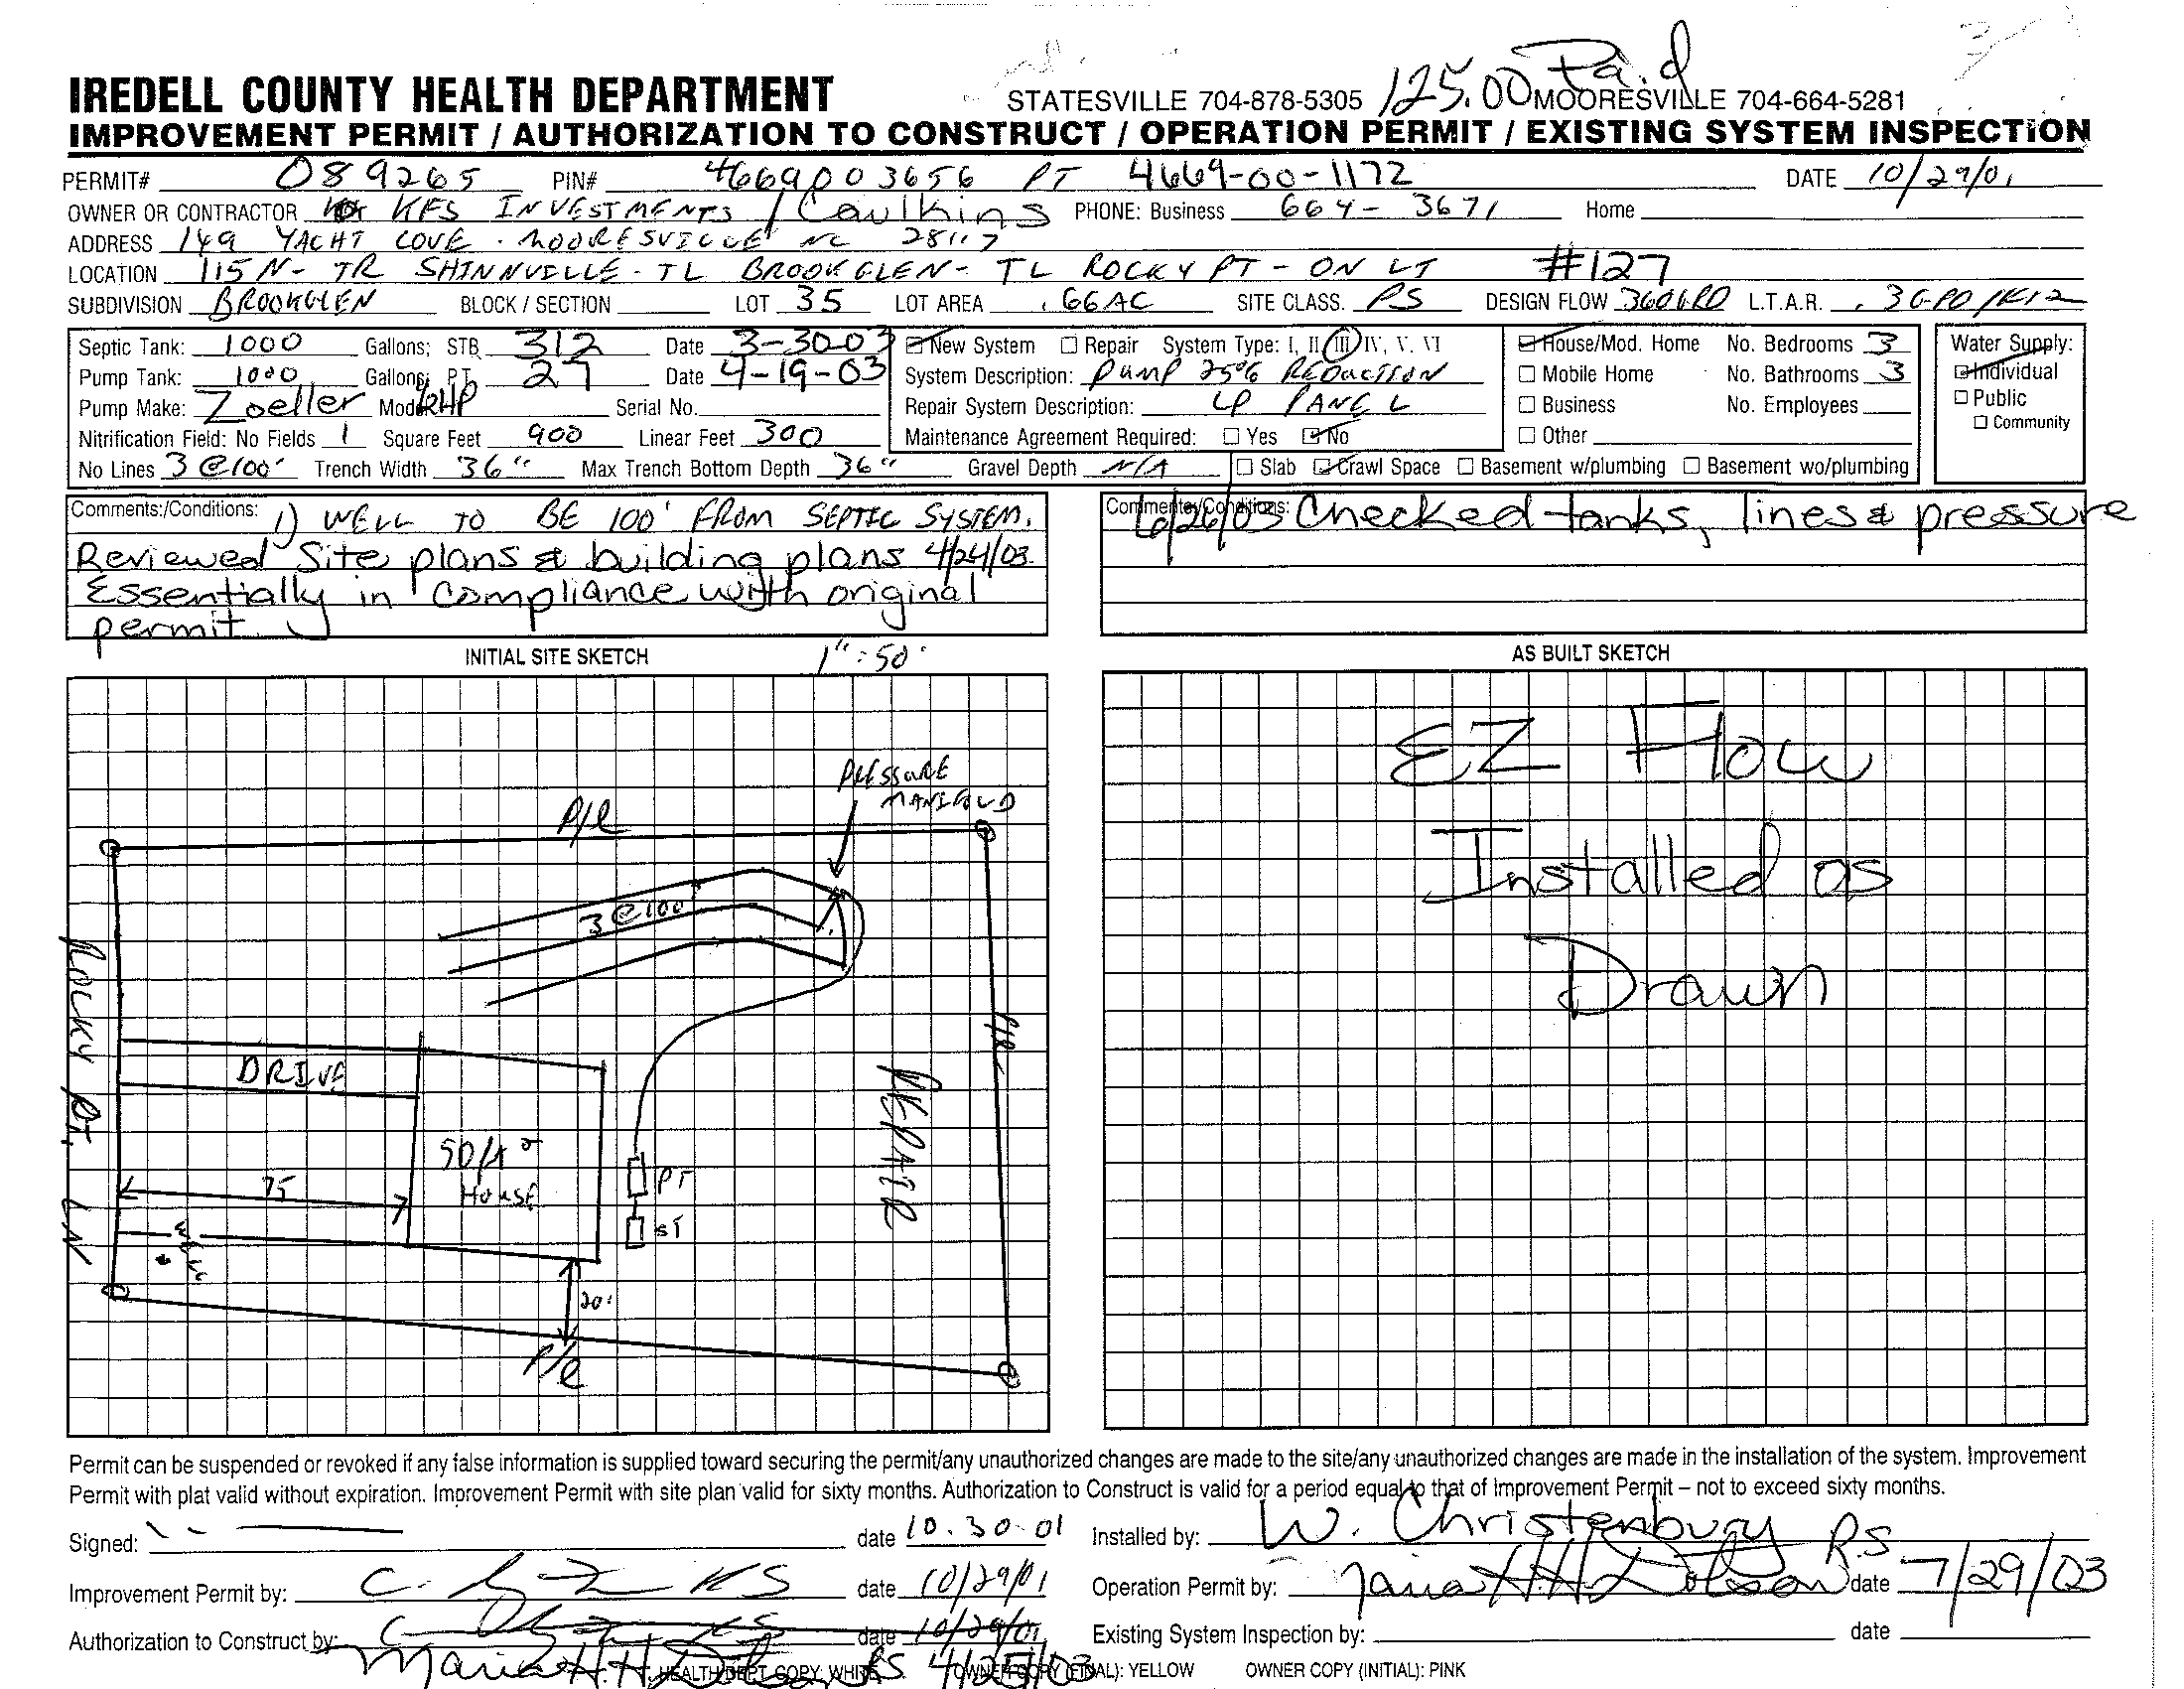 125.00 Paid
IREDELL COUNTY HEALTH DEPARTMENT STATESVILLE 704-878-5305 MOORESVILLE 704-664-5281
IMPROVEMENT PERMIT / AUTHORIZATION TO CONSTRUCT / OPERATION PERMIT / EXISTING SYSTEM INSPECTION
PERMIT# 089265 PIN# 4669003656 PT 4669-00-1172 DATE 10/29/01
OWNER OR CONTRACTOR KFS INVESTMENTS / Caulkins PHONE: Business 664-3671 Home
ADDRESS 149 YACHT COVE. MOORESVILLE NC 28117
LOCATION 115 N- TR SHINNVILLE- TL BROOKGLEN- TL ROCKY PT - ON LT #127
SUBDIVISION BROOKGLEN BLOCK / SECTION LOT 35 LOT AREA .66AC SITE CLASS. PS DESIGN FLOW 360GPD L.T.A.R. .3GPD/FT2
Septic Tank: 1000 Gallons; STB 312 Date 3-30-03 New System Repair System Type: I, II, III, IV, V. VI House/Mod. Home No. Bedrooms 3 Water Supply:
Pump Tank: 1000 Gallons; P.T. 27 Date 4-19-03 System Description: PUMP 25% REDUCTION Mobile Home No. Bathrooms 3 Individual
Pump Make: Zoeller Model Serial No. Repair System Description: LP PANEL Business No. Employees Public
Nitrification Field: No Fields 1 Square Feet 900 Linear Feet 300 Maintenance Agreement Required: Yes No Other Community
No Lines 3@100' Trench Width 36" Max Trench Bottom Depth 36" Gravel Depth N/A Slab Crawl Space Basement w/plumbing Basement wo/plumbing
Comments:/Conditions: 1) WELL TO BE 100' FROM SEPTIC SYSTEM.
Reviewed Site plans & building plans 4/24/03.
Essentially in compliance with original
permit.
Comments:/Conditions: 6/26/03 Checked tanks, lines & pressure
INITIAL SITE SKETCH 1":50'
PRESSURE
MANIFOLD
P/L
3@100'
ROCKY PT. LN
P/L
DRIVE
REPAIR
HOUSE
75
PT
ST
WELL
20'
P/L
AS BUILT SKETCH
EZ Flow
Installed as
Drawn
Permit can be suspended or revoked if any false information is supplied toward securing the permit/any unauthorized changes are made to the site/any unauthorized changes are made in the installation of the system. Improvement
Permit with plat valid without expiration. Improvement Permit with site plan valid for sixty months. Authorization to Construct is valid for a period equal to that of Improvement Permit – not to exceed sixty months.
Signed: date 10.30.01 Installed by: W. Christenbury
Improvement Permit by: date 10/29/01 Operation Permit by: RS date 7/29/03
Authorization to Construct by: date 10/29/01 Existing System Inspection by: date
RS 4/25/03
HEALTH DEPT. COPY: WHITE OWNER COPY (FINAL): YELLOW OWNER COPY (INITIAL): PINK